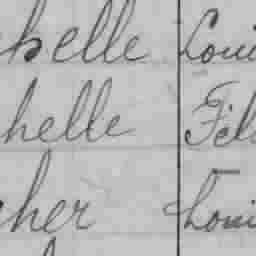 chelle Loui
helle Féli
cher Loui